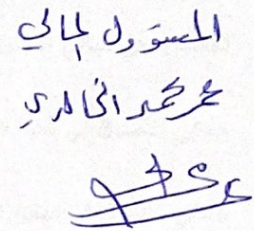 المسؤول المالي
عمر محمد الخالدي